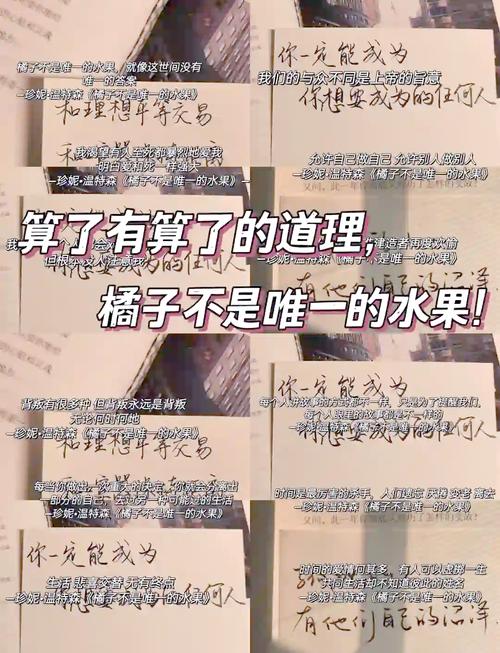 橘子不是唯一的水果,就像这世间没有
唯一的答案
—珍妮•温特森《橘子不是唯一的水果》
和理想平等交易
我渴望有人至死都暴烈地爱我
明白爱和死一样强大
—珍妮•温特森《橘子不是唯一的水果》
你一定能成为
我们的与众不同是上帝的旨意
你想要成为的任何人
允许自己做自己 允许别人做别人
—珍妮•温特森《橘子不是唯一的水果》
算了有算了的道理,
橘子不是唯一的水果!
建造者再度欢愉
—珍妮•温特森《橘子不是唯一的水果》
有他们自己的沼泽
背叛有很多种 但背叛永远是背叛
无论何时何地
—珍妮•温特森《橘子不是唯一的水果》
和理想平等交易
每当你做出一次重大的决定,你就会分离出
一部分的自己,去过另一种可能过的生活
—珍妮•温特森《橘子不是唯一的水果》
你一定能成为
每个人讲故事的方式都不一样,只是为了提醒我们,
每个人眼里的故事都是不一样的
—珍妮•温特森《橘子不是唯一的水果》
你想要成为的任何人
时间是最厉害的杀手,人们遗忘 厌倦 变老 离去
—珍妮•温特森《橘子不是唯一的水果》
你一定能成为
生活 悲喜交替 无有终点
—珍妮•温特森《橘子不是唯一的水果》
你想要成为的任何人
时间的爱情何其多,有人可以虚掷一生
共同生活却不知道彼此的姓名
—珍妮•温特森《橘子不是唯一的水果》
有他们自己的沼泽